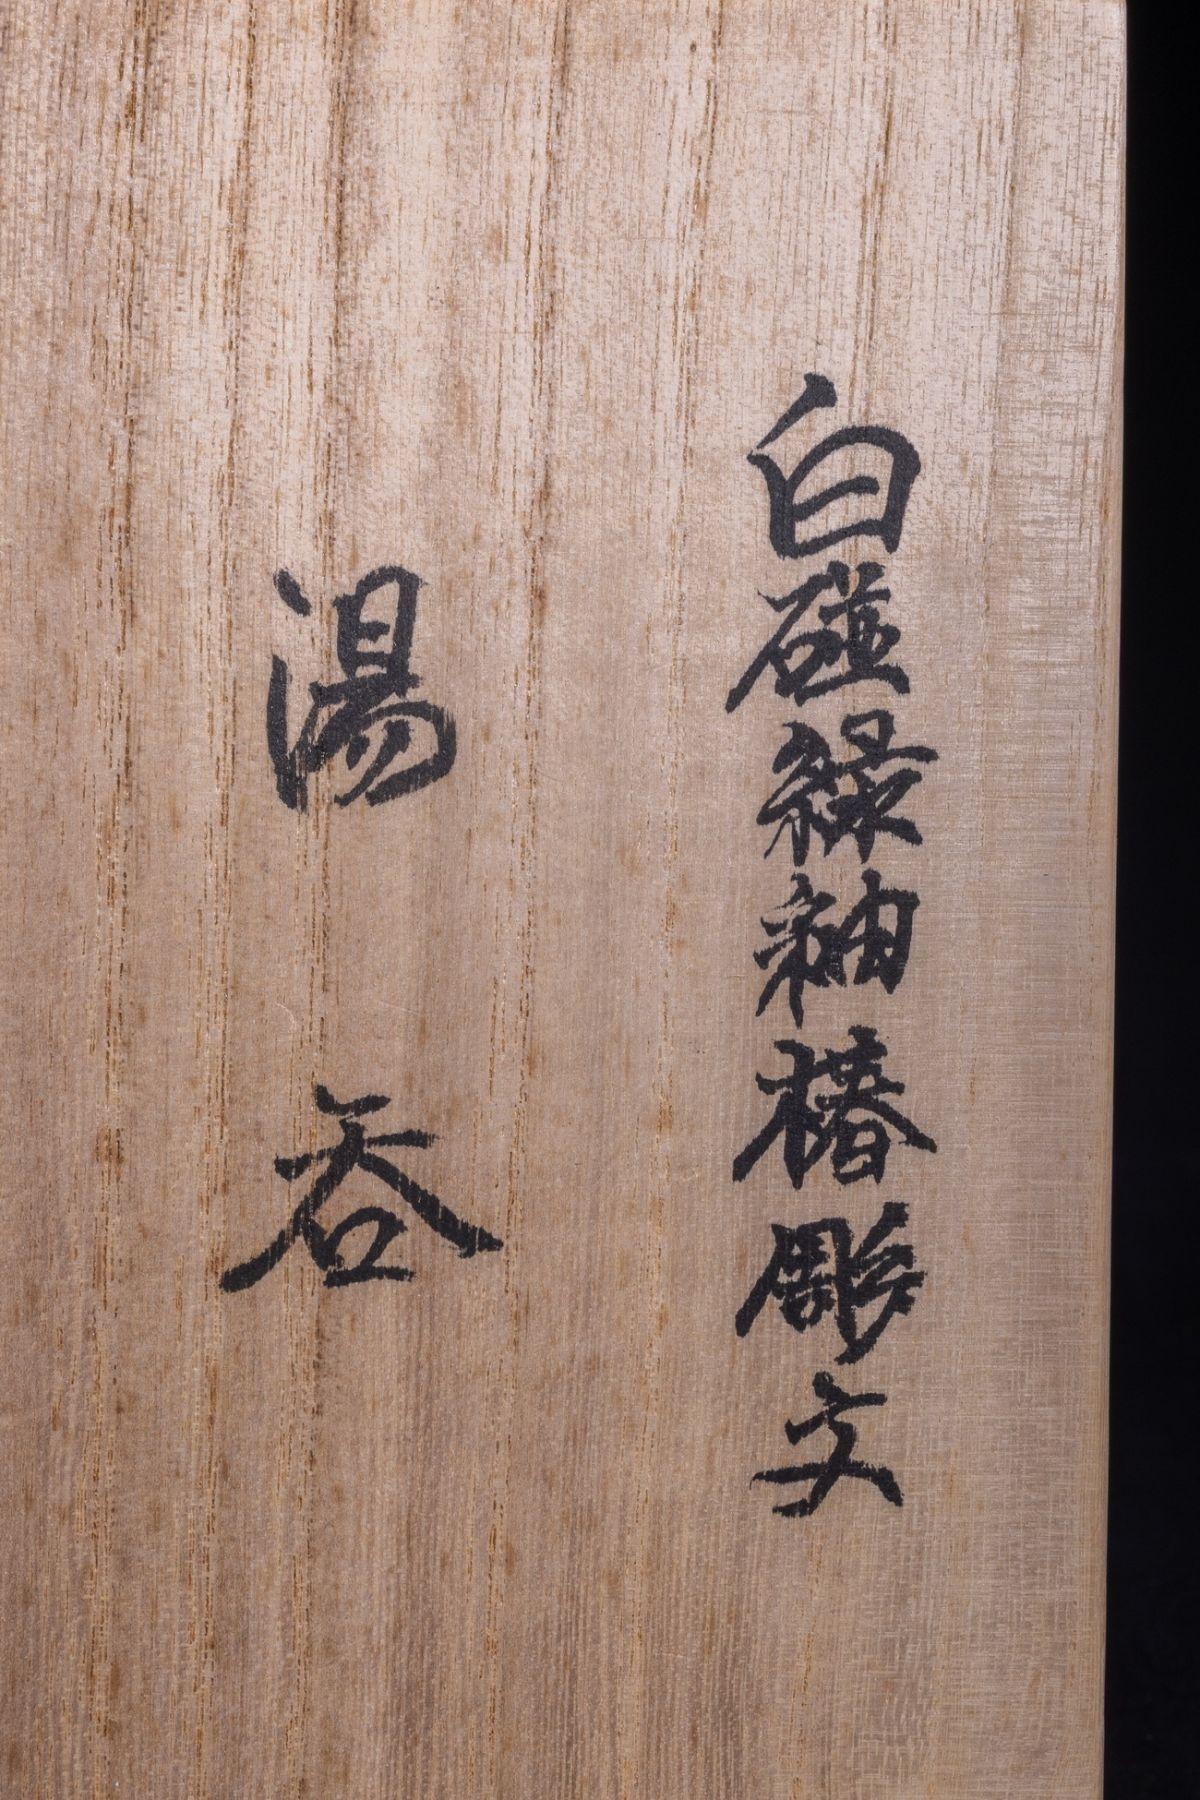 白磁緑釉椿彫文
湯呑